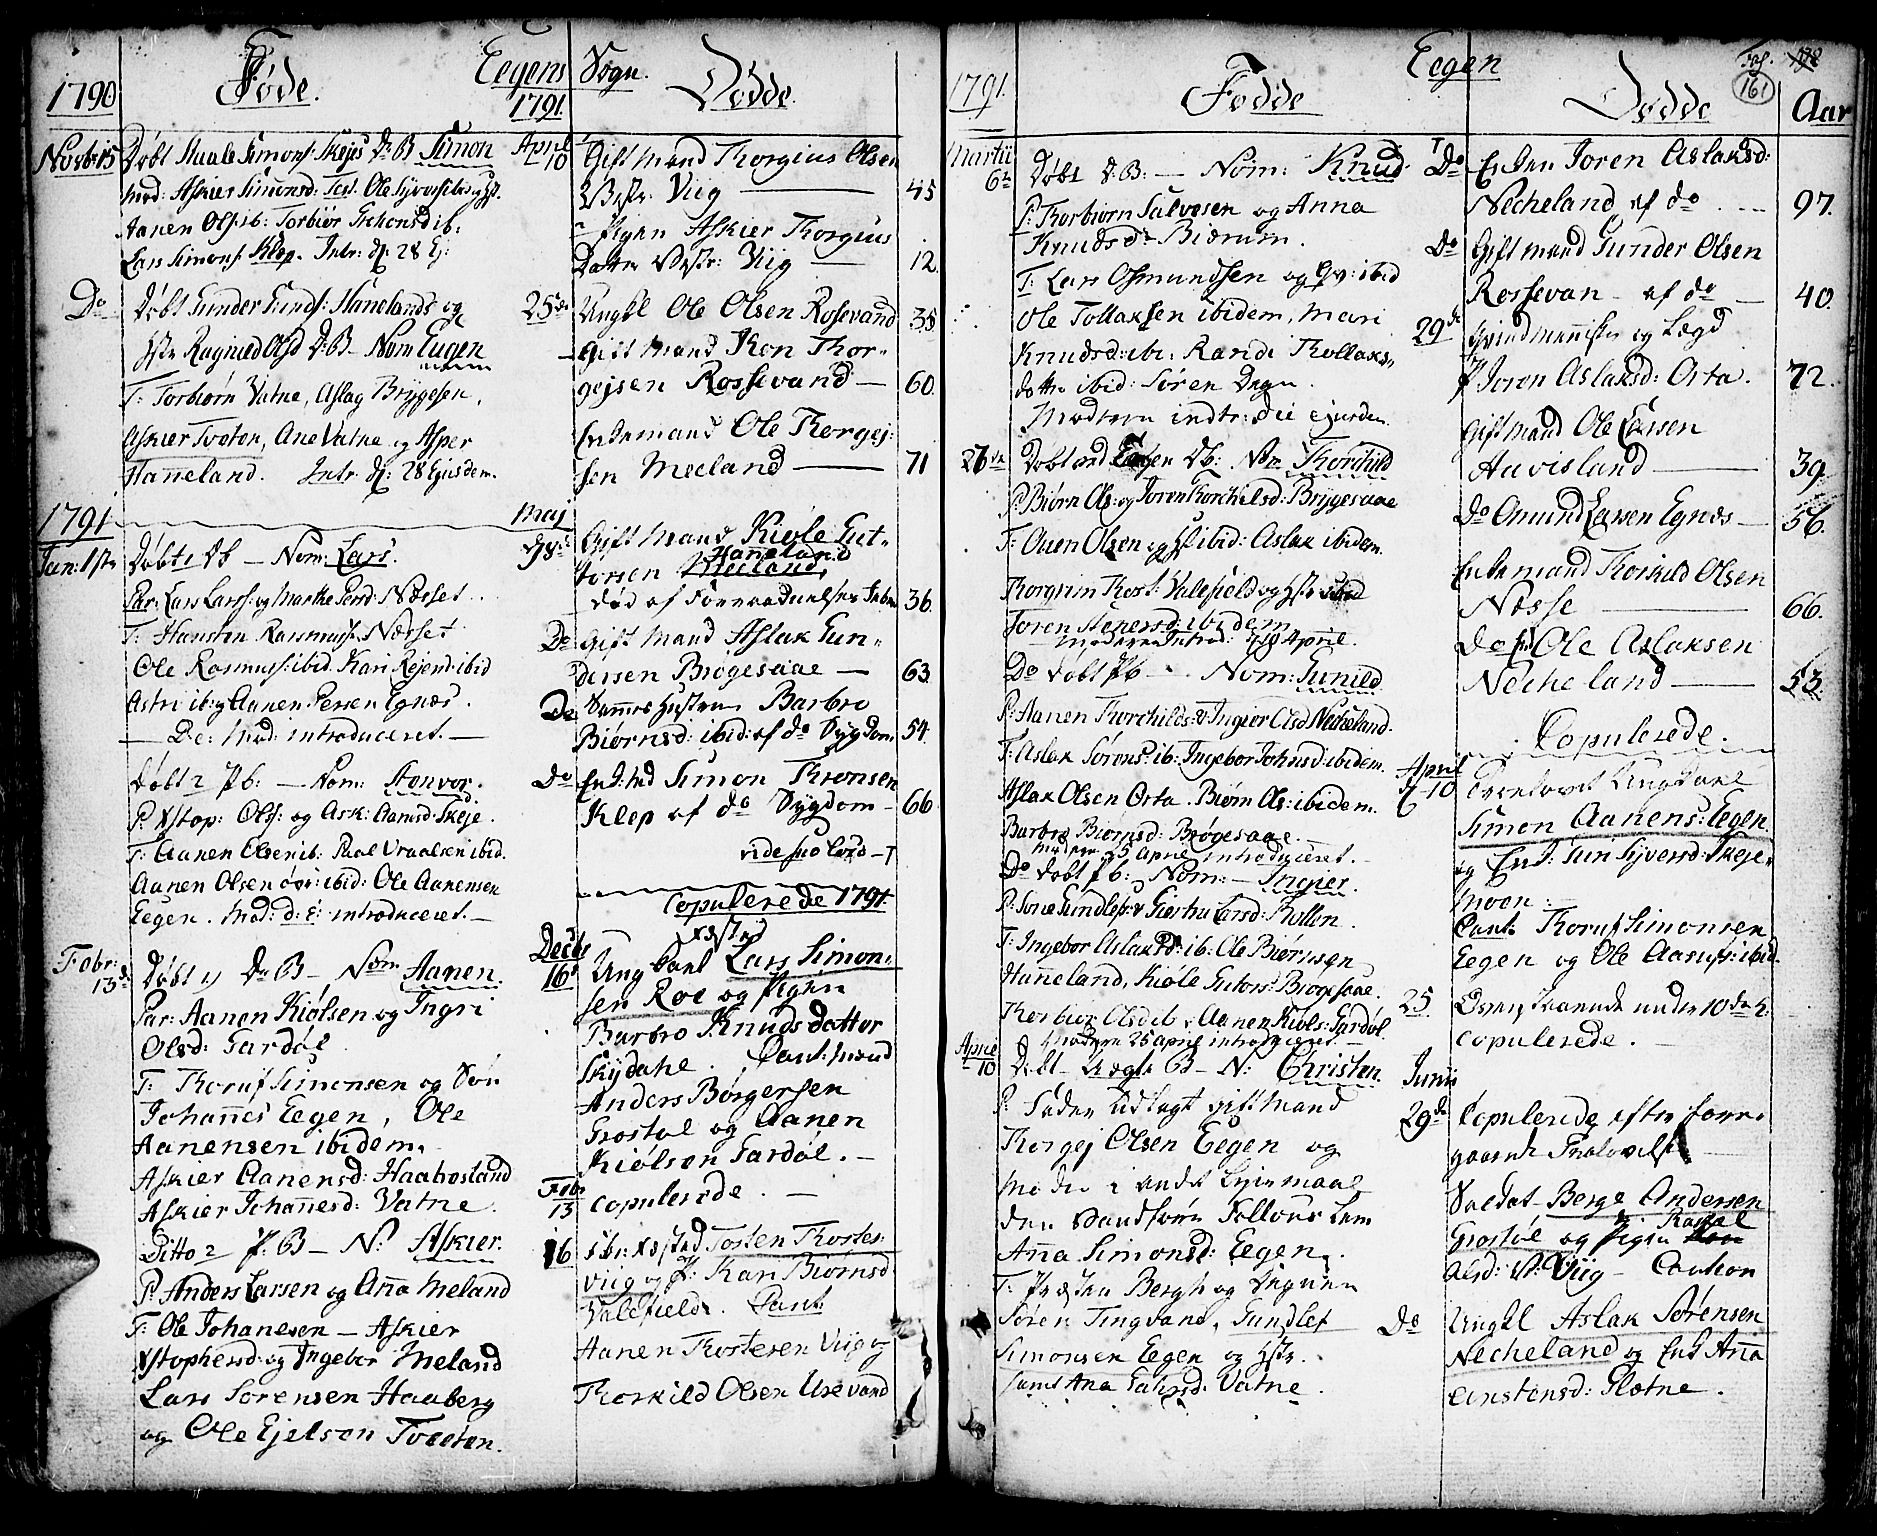 1790
Føde.
Eegens Sogn.
1791.
Dødde.
Novbr 15
Døbt Staale Simons: Skejes D: B Simon
Mod: Askier Simonsd: Test. Ole
Aanen Ols: ib: Torbiør
Lars Simons: Klep. Intr: d: 28 Ej:
Do
Døbt Gunder Gunds: Hanelands og
Hstr Ragnild Olsd D: B – Nom Eugen
T: Torbiørn Vatne, Aslag Brygesen,
Askier Tveten, Ane Vatne og Asper
Hanneland. Intr d: 28 Ejusdem.
1791
Jan: 1ste
Døbt 1 Db – Nom: Lars.
Par: Lars Larss: og Marthe Persd: Nærset.
T: Hansten Rasmuss: Nærset
Ole Rasmuss: ibid. Kari Rejersd: ibid
Astri ib: og Aanen Persen Egnæs.
– De: Mod: introduceret. –
Døbt 2 Pb: – Nom: Stonvor.
P. Xstop: Olss: og Ask: Aamsd: Skeje.
T: Aanen Olsen ib: Paal Vraalsen ibid.
Aanen Olsen ibid: Ole Aanensen
Eegen. Mod: d: E: introduceret. –
Febr: 13de
Døbt 1) D: B – Nom Aanen.
Par: Aanen Kiølsen og Ingri
Olsd: Gardøl.
T: Thoruf Simonsen og Søn
Johannes Eegen, Ole
Aanensen ibidem.
Askier Aanensd: Haabesland
Askier Johannesd: Vatne.
Ditto 2 P: B – N: Askier.
P: Anders Larsen og Anna Meland
T: Ole Johanesen – Askier
Xstophersd: og Ingebor Meland
Lars Sørensen Haaberg
og Ole Ejelsen Tveeten.
April 10
Gift Mand Thorgius Olsen
Vestr: Viig – 45
Pigen Askier Thorgius
Datter Vestr: Viig – 12.
25de
Ungkl Ole Olsen Rossevand 35
Gift Mand Ken Thor-
gejsen Rossevand – 60.
Enkemand Ole Thorgej:
sen Meeland – 71
Maj
d: 8de
Gift Mand Kiøle Gut-
torsen Meeland, Hanneland
død af Forraadnelses Feber 36.
Do
Gift Mand Aslak Gun-
dersen Brøgesaae – 63
Do
Sammes Hustru Barbro
Biørnsd: ibid: af do Sygdom 54.
Do
Simon Thronsen
Klep af do Sygdom – 66
vide suo loco – T
Copulerede 1791.
Decbr 16de
Ungkarl Lars Simon:
sen Roe og Pigen
Barbro Knuds datter
Skydahe. Caut: Mænd
Anders Børgersen
Grostøl og Aanen
Kiølsen Gardøl. –
Febr 13
Copulerede. –
16
Tosten Thostes:
Viig og P: Kari Biørnsd
Valefield. Caut:
Aanen Thostesen Viig og
Thorkild Olsen Urevand
1791.
Fødde
Eegen
Dødde
Fol. 161
Aar
Martii 6te
Døbt D: B: – Nom: Knud
P: Thorbiørn Salvesen og Anna
Knudsdr Biærum.
T: Lars Osmundsen og Qv: ibid
Ole Tollaksen ibidem, Mari
Knudsd: ib: Randi Thollaks-
dotter ibid: Søren Degn.
Moderen indtr: die ejusdem
27de
Døbt Db: Nom Thorchild
P: Biørn Ols: og Joren Thorchelsd: Brygesaae
T: Ouen Olsen og Hst ibid: Aslak ibidem.
Thorgrim Thost: Valefield og Hstr ibid
Joren Stenersd: ibidem
Moderen Introd: d 10 April.
Do Døbt Pb – Nom: Gunild
P: Aanen Thorchilds: & Ingier Olsd Necheland.
T: Aslak Sørens: ib: Ingebor Johnsd: ibidem.
Aslak Olsen Orta. Biørn Ols: ibidem.
Barbro Biørnsd: Brøgesaae.
Moderen 25 April introduceret. –
Do Døbt Pb: Nom: – Ingier.
P: Søne Gundlefs: & Giertru Larsd: Rullen.
T: Ingebor Aslaksd: ib: Ole Biørnsen
Hanneland, Kiøle Gutors: Brøgesaae.
Thorbior Olsd ib: Aanen Kiøls: Gardøl.
Moderen 25 April introduceret –
April 10
Døbt Uægte B – N: Christen.
P: Fader udlagt gift Mand
Thorgej Olsen Eegen og
Moder i andet Leiermaal
den Vandføre
Anna Simonsd: Eegen.
T: Præsten Bergh og Degnen
Søren Tingvand, Gundlef
Simonsen Eegen og Hstr.
samt Ana Gahrsd: Vatne.
Do
Enken Joren Aslaksd:
Necheland af do – 97.
Do
Gift Mand Gunder Olsen
Rossevan – af do – 40.
29de
Qvindmenniske og Lægd
P Joren Aslaksd: Orta. 72.
Gift Mand Ole Larsen
Aavisland – 39.
Do Omund Larsen Egnæs – 56.
Enkemand Thorkild Olsen
Næsse – 66.
Do Ole Aslaksen
Necheland – 53.
Copulerede.
April d 10
Trolovet Ungkarl
Simon Aanens: Eegen.
og Enk: Siri Syversd: Skeje
Moen:
Caut: Thoruf Simonsen
Eegen og Ole Aanens: ibid.
25.
Ovenstaaende under 10de
copulerede. –
Junii 29de
Copulerede efter fore-
gaaende Trolovelse
Soldat Berge Andersen
Grostøl og Pigen Rachel
Olsd: V: Viig – Caution
Do
Ungkl Aslak Sørensen
Necheland og Enk Anna
Anstensd: Flotne.